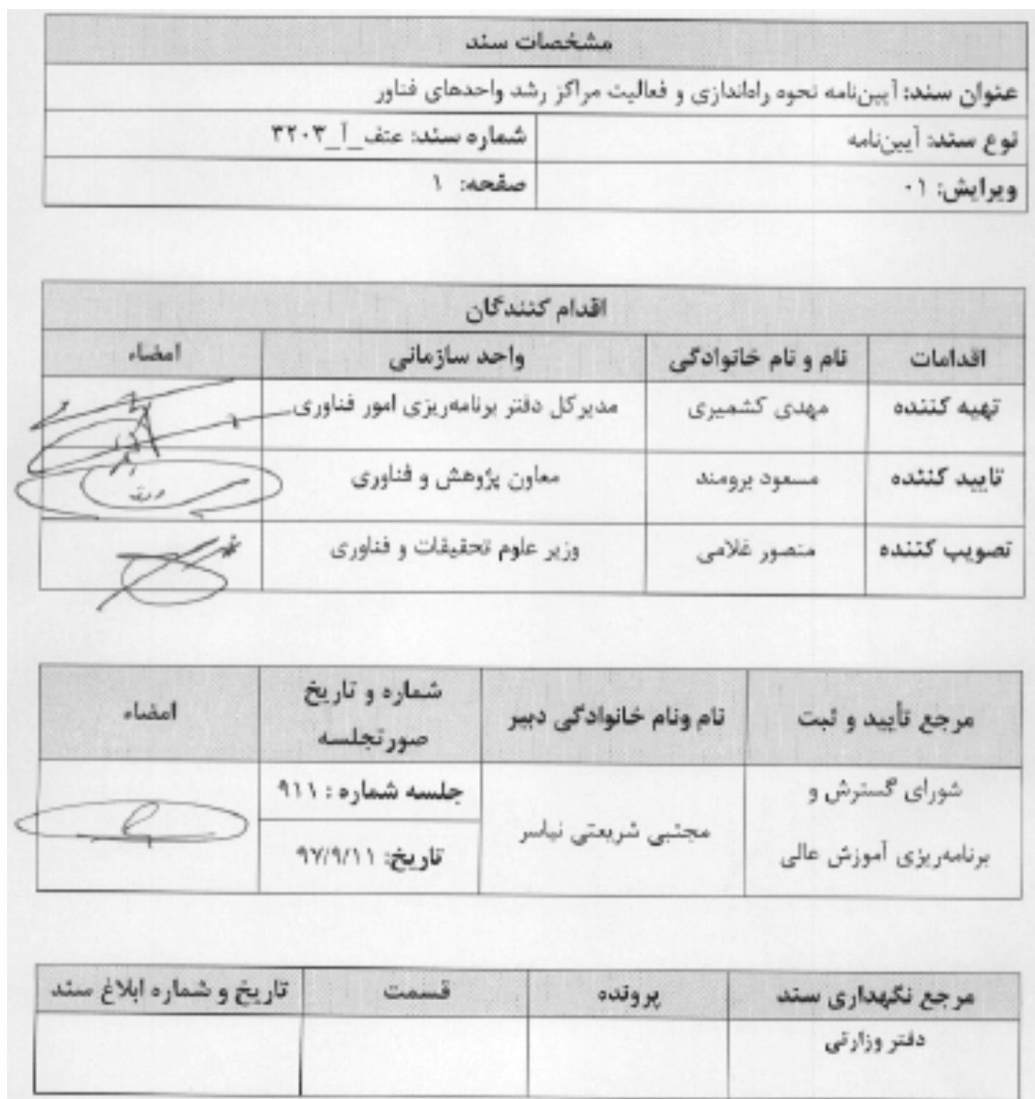 مشخصات سند
عنوان سند: آیین‌نامه نحوه راه‌اندازی و فعالیت مراکز رشد واحدهای فناور
نوع سند: آیین‌نامه شماره سند: عتف_آ_۳۲۰۳
ویرایش: ۰۱ صفحه: ۱
اقدام کنندگان
اقدامات نام و نام خانوادگی واحد سازمانی امضاء
تهیه کننده مهدی کشمیری مدیرکل دفتر برنامه‌ریزی امور فناوری
تایید کننده مسعود برومند معاون پژوهش و فناوری
تصویب کننده منصور غلامی وزیر علوم تحقیقات و فناوری
مرجع تأیید و ثبت نام ونام خانوادگی دبیر شماره و تاریخ امضاء
صورتجلسه
شورای گسترش و جلسه شماره : ۹۱۱
مجتبی شریعتی نیاسر
برنامه‌ریزی آموزش عالی تاریخ: ۹۷/۹/۱۱
مرجع نگهداری سند پرونده قسمت تاریخ و شماره ابلاغ سند
دفتر وزارتی